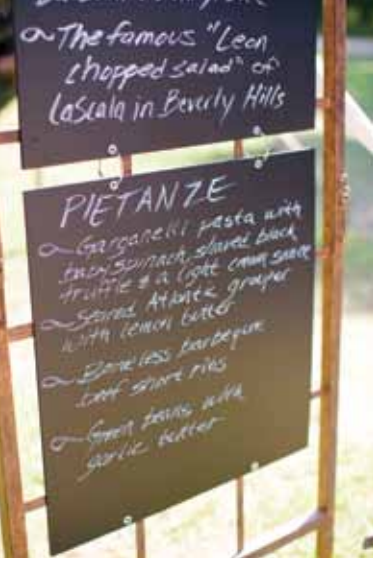 The famous "Leon
chopped salad" of
LaScala in Beverly Hills
PIETANZE
Garganelli pasta with
baby spinach, shaved black
truffle & a light cream sauce
Seared Atlantic grouper
with lemon butter
Boneless barbeque
beef short ribs
Green beans with
garlic butter